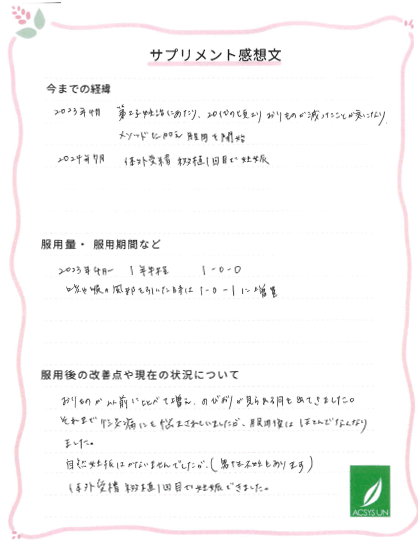 サプリメント感想文
今までの経緯
2023年4月 第2子妊活にあたり、20代のときより おりものが減ったことが気になり、
メソッドに加え 服用を開始
2024年7月 体外受精 初移植1回目で妊娠
服用量・服用期間など
2023年4月〜 1年半程 1-0-0
咳や喉の風邪を引いた時は 1-0-1に増量
服用後の改善点や現在の状況について
おりものが以前に比べて増え、のびおりが見られる月も出てきました。
それまでカンジダ病にも悩まされていましたが、服用後はほとんどなくなり
ました。
自然妊娠はかないませんでしたが、(男性不妊もあります)
体外受精 初移植1回目で妊娠できました。
ACSYS UN